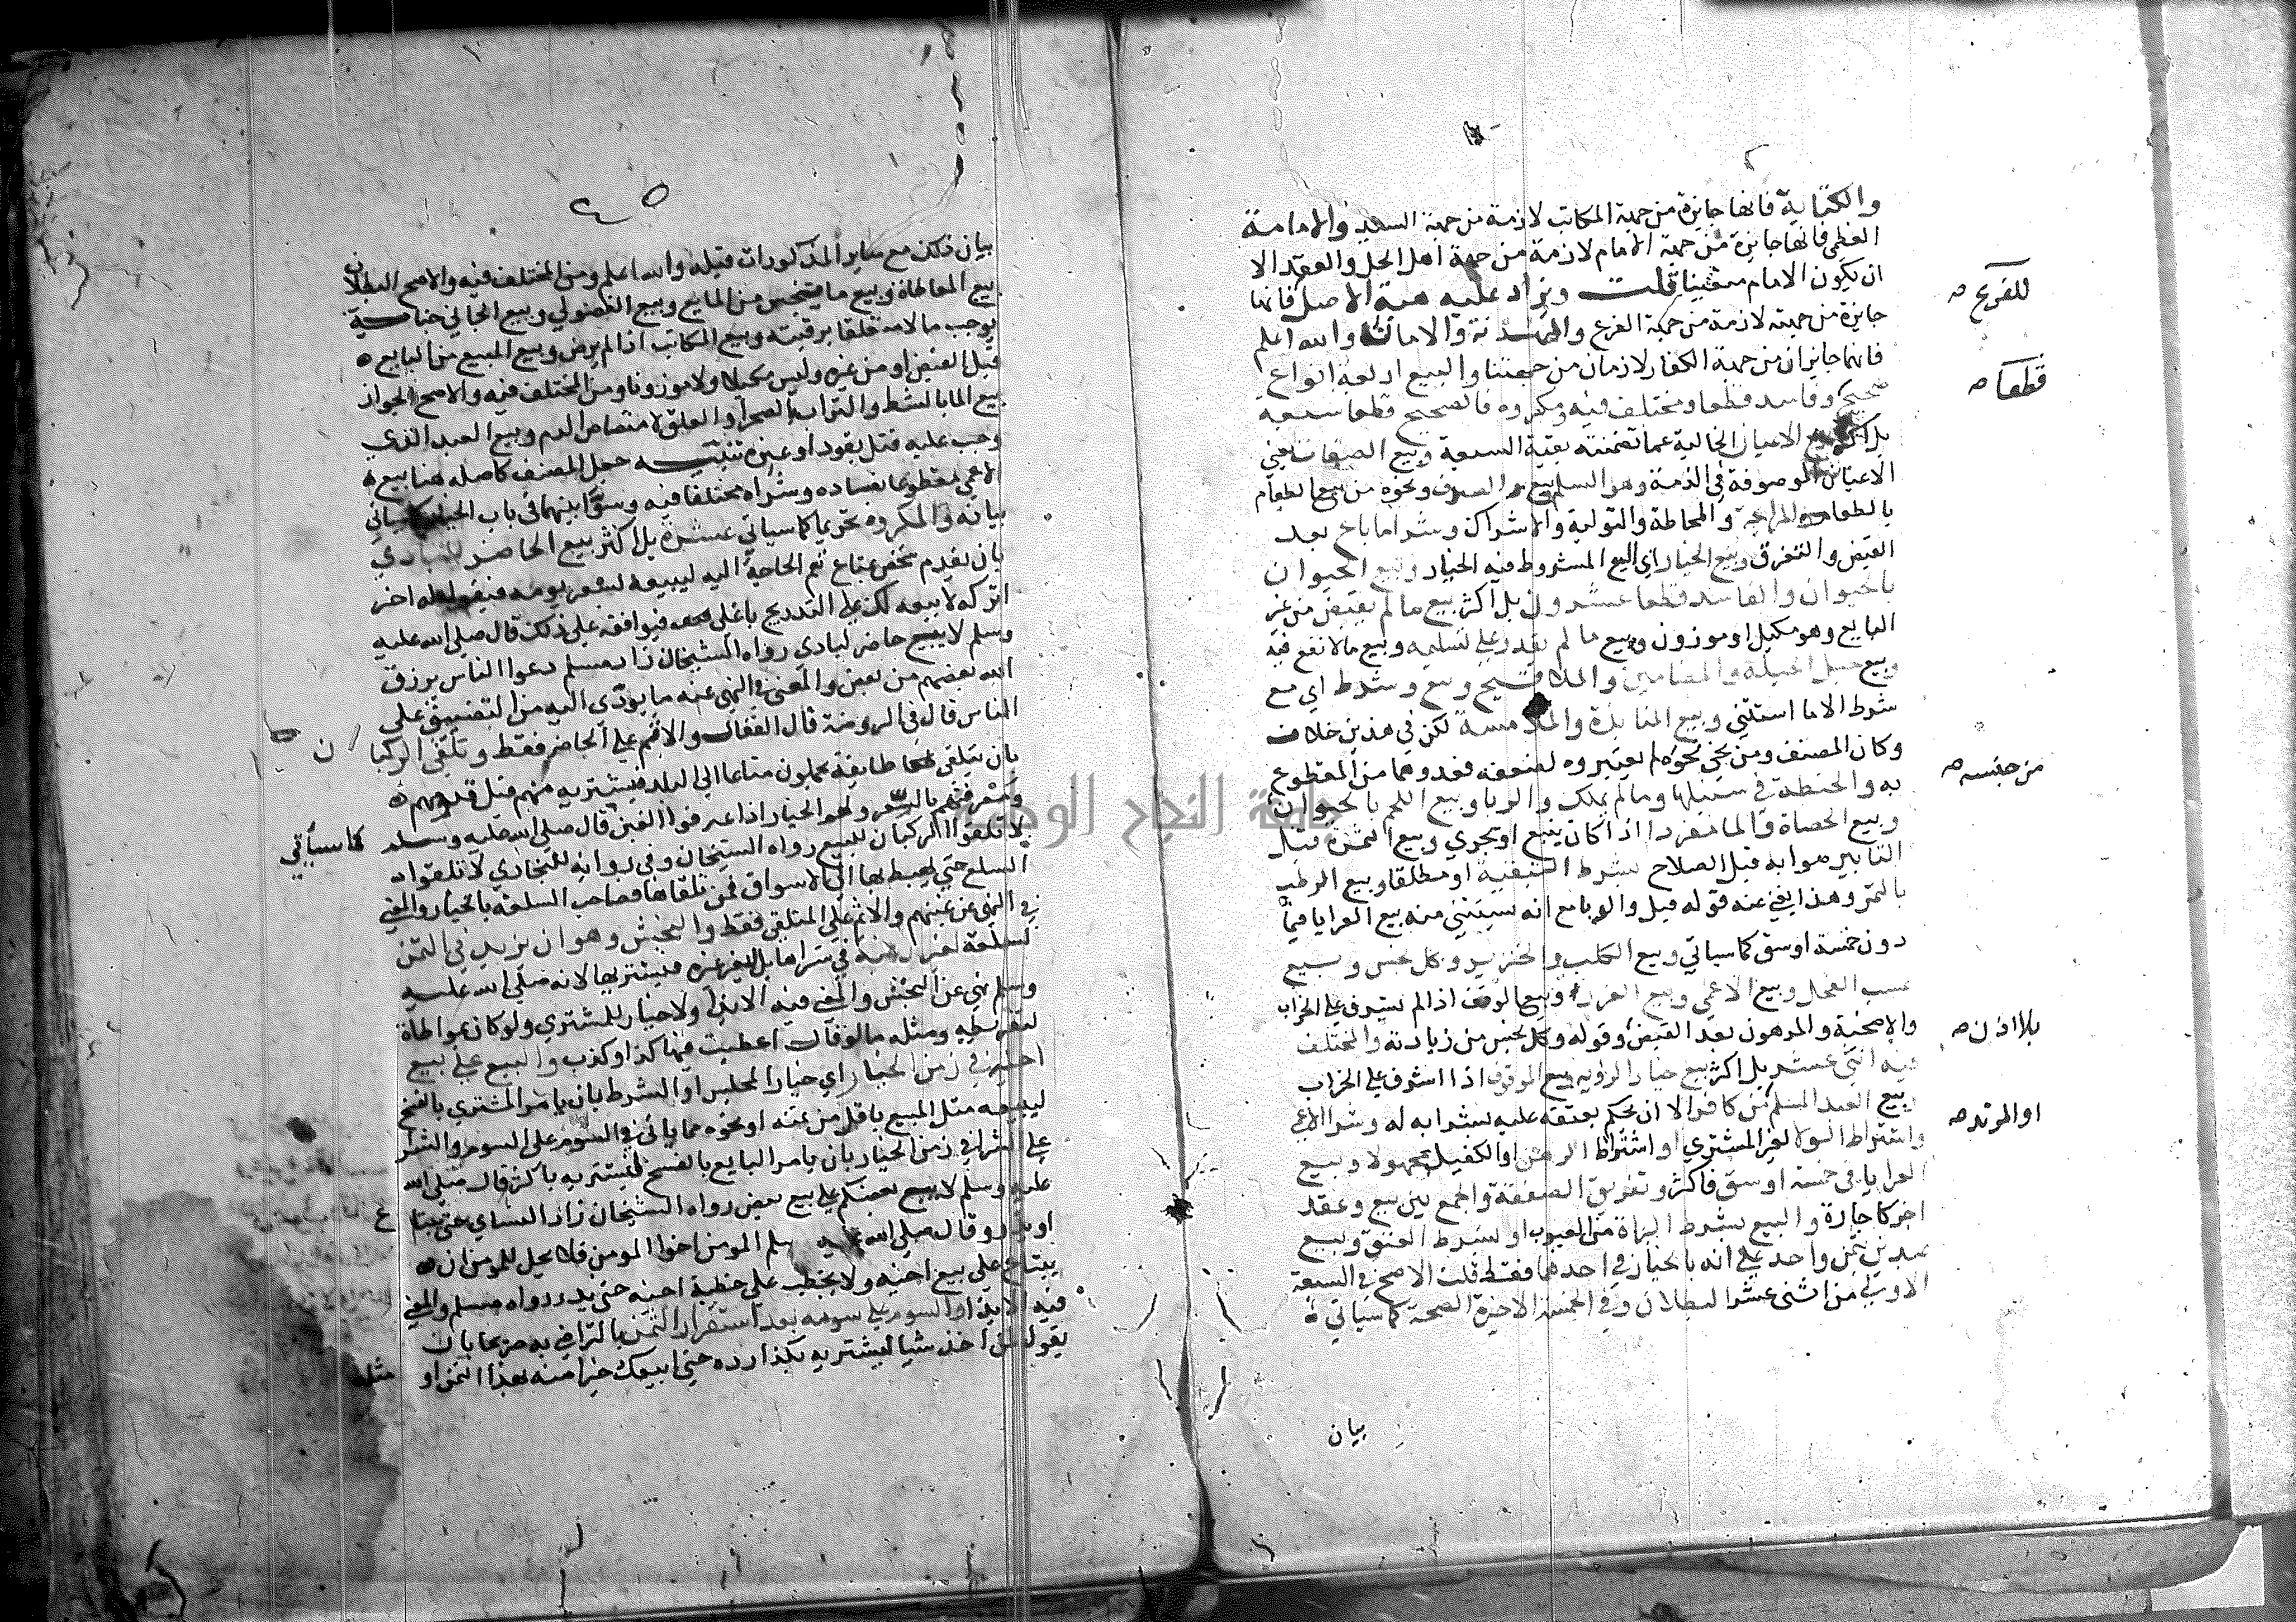 والكتابة فانها جايزة من جهة المكاتب لازمة من جهة السيد والامامة
العظمى فانها جايزة من جهة الامام لازمة من جهة اهل الحل والعقد الا
ان يكون الامام متعينا قلت ويزاد عليه هبة الاصل فانها
للفرع صح
جايزة من جهته لازمة من جهة الفرع والهدنة والامان والله اعلم
فانهما جايزان من جهة الكفار لازمان من جهتنا والبيع اربعة انواع
صحيح وفاسد قطعا ومختلف فيه ومكروه فالصحيح قطعا سبعة
قطعا صح
بل اكثر بيع الاعيان الخالية عما تضمنته بقية السبعة وبيع الصفات يعني
الاعيان الموصوفة في الذمة وهو السلم وبيع الصرف ونحوه من بيع الطعام
بالطعام والمرابحة والمحاطة والتولية والاشراك وشرا ما باع بعد
القبض والتفرق وبيع الخيار اي البيع المشروط فيه الخيار وبيع الحيوان
بالحيوان والفاسد قطعا عشرون بل اكثر بيع ما لم يقبض من غير
البايع وهو مكيل او موزون وبيع ما لم يقدر على تسليمه وبيع ما لا نفع فيه
وبيع حبل الحبلة والمضامين والملاقيح وبيع وشرط اي مع
شرط الا ما استثني وبيع المنابذة والملامسة لكن في هذين خلاف
وكان المصنف ومن نحى نحوه لم يعتبروه لضعفه فعدوهما من المقطوع
به والحنطة في سنبلها وما لم يملك والربا وبيع اللحم بالحيوان
من جنسه صح
وبيع الحصاة والما مفردا اذا كان ينبع او يجري وبيع الثمرة قبل
التابير صوابه قبل الصلاح بشرط التبقية او مطلقا وبيع الرطب
بالتمر وهذا يغني عنه قوله قبل والربا مع انه سيثنى منه بيع العرايا فيما
دون خمسة اوسق كما سياتي وبيع الكلب والخنزير وكل نجس وبيع
عسب الفحل وبيع الاعمى وبيع الغرر وبيع الوقف اذا لم يشرف على الخراب
والاضحية والمرهون بعد القبض وقوله وكل نجس من زيادته والمختلف
بلا اذن صح
فيه اثنى عشر بل اكثر بيع خيار الرؤيه وبيع الموقوف اذا اشرف على الخراب
وبيع العبد المسلم من كافر الا ان يحكم بعتقه عليه بشرايه له وشرا الاعمى
او المرتد صح
واشتراط الولا لغير المشتري او اشتراط الرهن او الكفيل مجهولا وبيع
العرايا في خمسة اوسق فاكثر وتفريق الصفقة والجمع بين بيع وعقد
اخر كاجارة والبيع بشرط البراة من العيوب او بشرط العتق وبيع
عبدين بثمن واحد على انه بالخيار في احدهما فقط قلت الاصح في السبعة
الاولى من اثنى عشر البطلان وفي الخمسة الاخيرة الصحة كما سياتي
بيان
٤٥
بيان ذلك مع ساير المذكورات قبله والله اعلم ومن المختلف فيه والاصح البطلان
بيع المعاطاة وبيع ما يتنجس من المايع وبيع الفضولي وبيع الجاني جناية
توجب مالا متعلقا برقبته وبيع المكاتب اذا لم يرض وبيع المبيع من البايع
قبل القبض او من غيره وليس مكيلا ولا موزونا ومن المختلف فيه والاصح الجواز
بيع الما بالشط والتراب بالصحرا والعلق لامتصاص الدم وبيع العبد الذي
وجب عليه قتل بقود او غيره تنبيه جعل المصنف كاصله هنا بيع
الاعمى مقطوعا بفساده وشراه مختلفا فيه وسوا بينهما في باب الخيار كما سياتي
بيانه والمكروه تحريما كما سياتي عشرة بل اكثر بيع الحاضر للبادي
بان يقدم شخص بمتاع تعم الحاجة اليه ليبيعه بسعر يومه فيقول له اخر
اتركه لابيعه لك على التدريج باغلى فيوافقه على ذلك قال صلى الله عليه
وسلم لا يبيع حاضر لبادي رواه الشيخان زاد مسلم دعوا الناس يرزق
الله بعضهم من بعض والمعنى في النهي عنه ما يؤدي اليه من التضييق على
الناس قال في الروضة قال القفال والاثم على الحاضر فقط وتلقي الركبان
بان يتلقى طايفة يحملون متاعا الى البلد فيشتريه منهم قبل قدومهم
ومعرفتهم بالسعر ولهم الخيار اذا عرفوا الغبن قال صلى الله عليه وسلم
كما سياتي
لا تلقوا الركبان للبيع رواه الشيخان وفي رواية للبخاري لا تلقوا
السلع حتى يهبط بها الى الاسواق فمن تلقاها فصاحب السلعة بالخيار والمعنى
في النهي عن غبنهم والاثم على المتلقي فقط والنجش وهو ان يزيد في الثمن
لسلعة لغير رغبة في شراها بل ليغر غيره فيشتريها لانه صلى الله عليه
وسلم نهى عن النجش والمعنى فيه الايذا ولا خيار للمشتري ولو كان بمواطاة
لتفريطه ومثله ما لو قال اعطيت فيها كذا وكذب والبيع على بيع
اخيه في زمن الخيار اي خيار المجلس او الشرط بان يامر المشتري بالفسخ
ليبيعه مثل المبيع باقل من ثمنه او نحوه مما ياتي في السوم على السوم والشرا
على الشرا في زمن الخيار بان يامر البايع بالفسخ ليشتريه باكثر قال صلى الله
عليه وسلم لا يبيع بعضكم على بيع بعض رواه الشيخان زاد النساي حتى يبتاع
او يذر وقال صلى الله عليه وسلم المومن اخوا المومن فلا يحل للمومن ان
يبتاع على بيع اخيه ولا يخطب على خطبة اخيه حتى يذر رواه مسلم والمعنى
فيه الايذا والسوم على سومه بعد استقرار الثمن بالتراضي به صريحا بان
يقول لمن اخذ شيا ليشتريه بكذا رده حتى ابيعك خيرا منه بهذا الثمن او
مثله
جامعة النجاح الوطنية